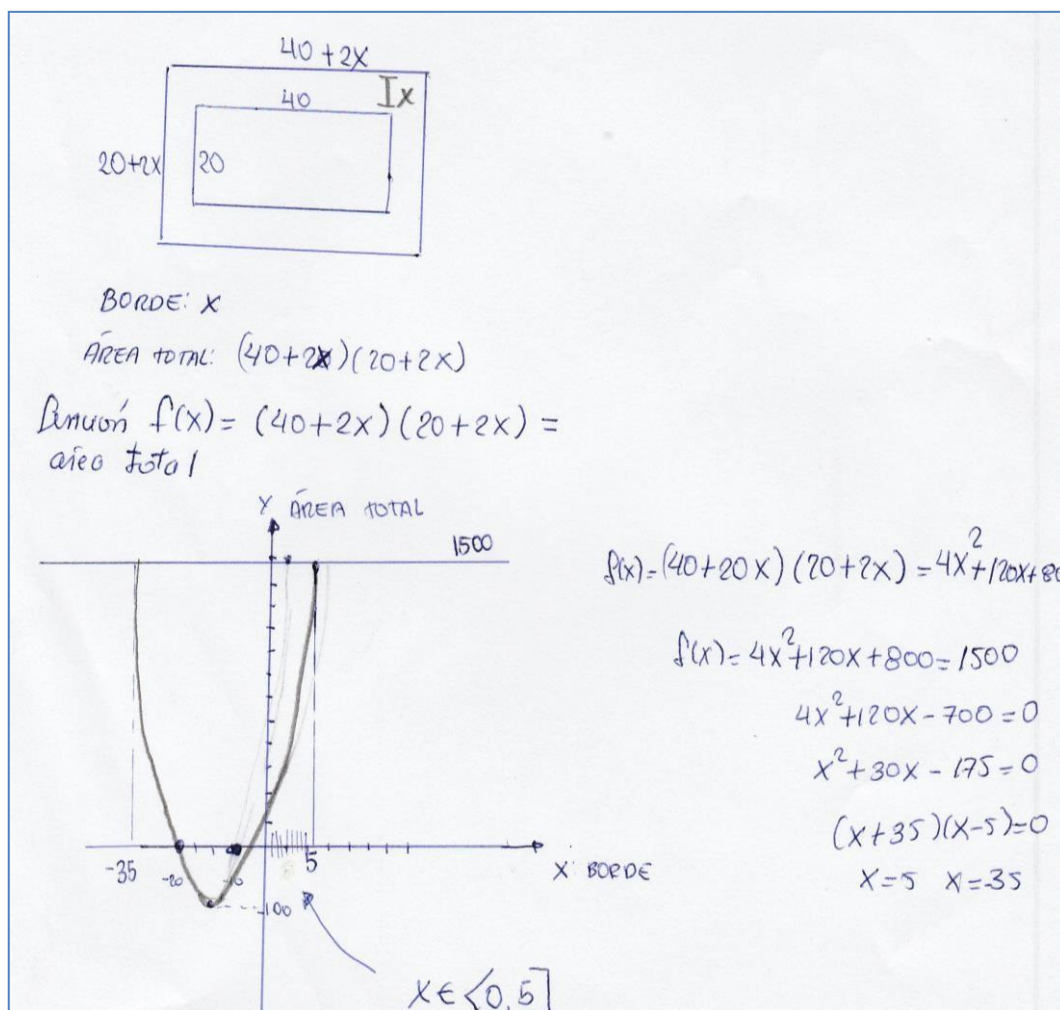 40+2X
40
X
20+2X
20
BORDE: X
ÁREA TOTAL: (40+2X)(20+2X)
f(X)= (40+2X)(20+2X) =
Y ÁREA TOTAL
1500
-35
-20
5
X: BORDE
-100
X∈<0,5]
f(x)=(40+20X)(20+2X)=4X²+120X+80
f(X)=4X²+120X+800=1500
4X²+120X-700=0
X²+30X-175=0
(X+35)(X-5)=0
X=5 X=-35